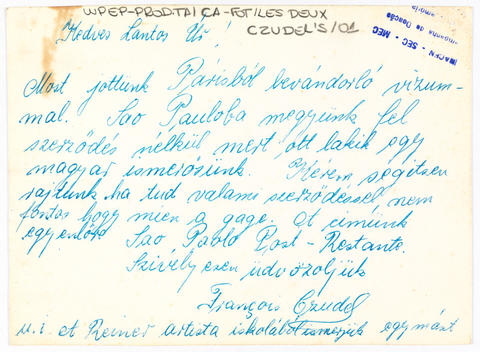 WPEP-PROD.TAICA-FOT/LES DEUX
CZUDEL'S/01
SEC - MEC
Kedves Lantos Úr!
Most jottunk Párisból bevándorló vizum-
mal. Sao Pauloba megyünk fel
szerződés nélkül mert ott lakik egy
magyar ismerősünk. Kérem segitsen
rajtunk ha tud valami szerződéssel nem
fontos hogy mien a gage. A cimünk
egyenlőre Sao Paolo Post-Restante.
Szivélyesen üdvözöljük
François Czudel
u.i. A Reiner artista iskolából ismerjük egymást